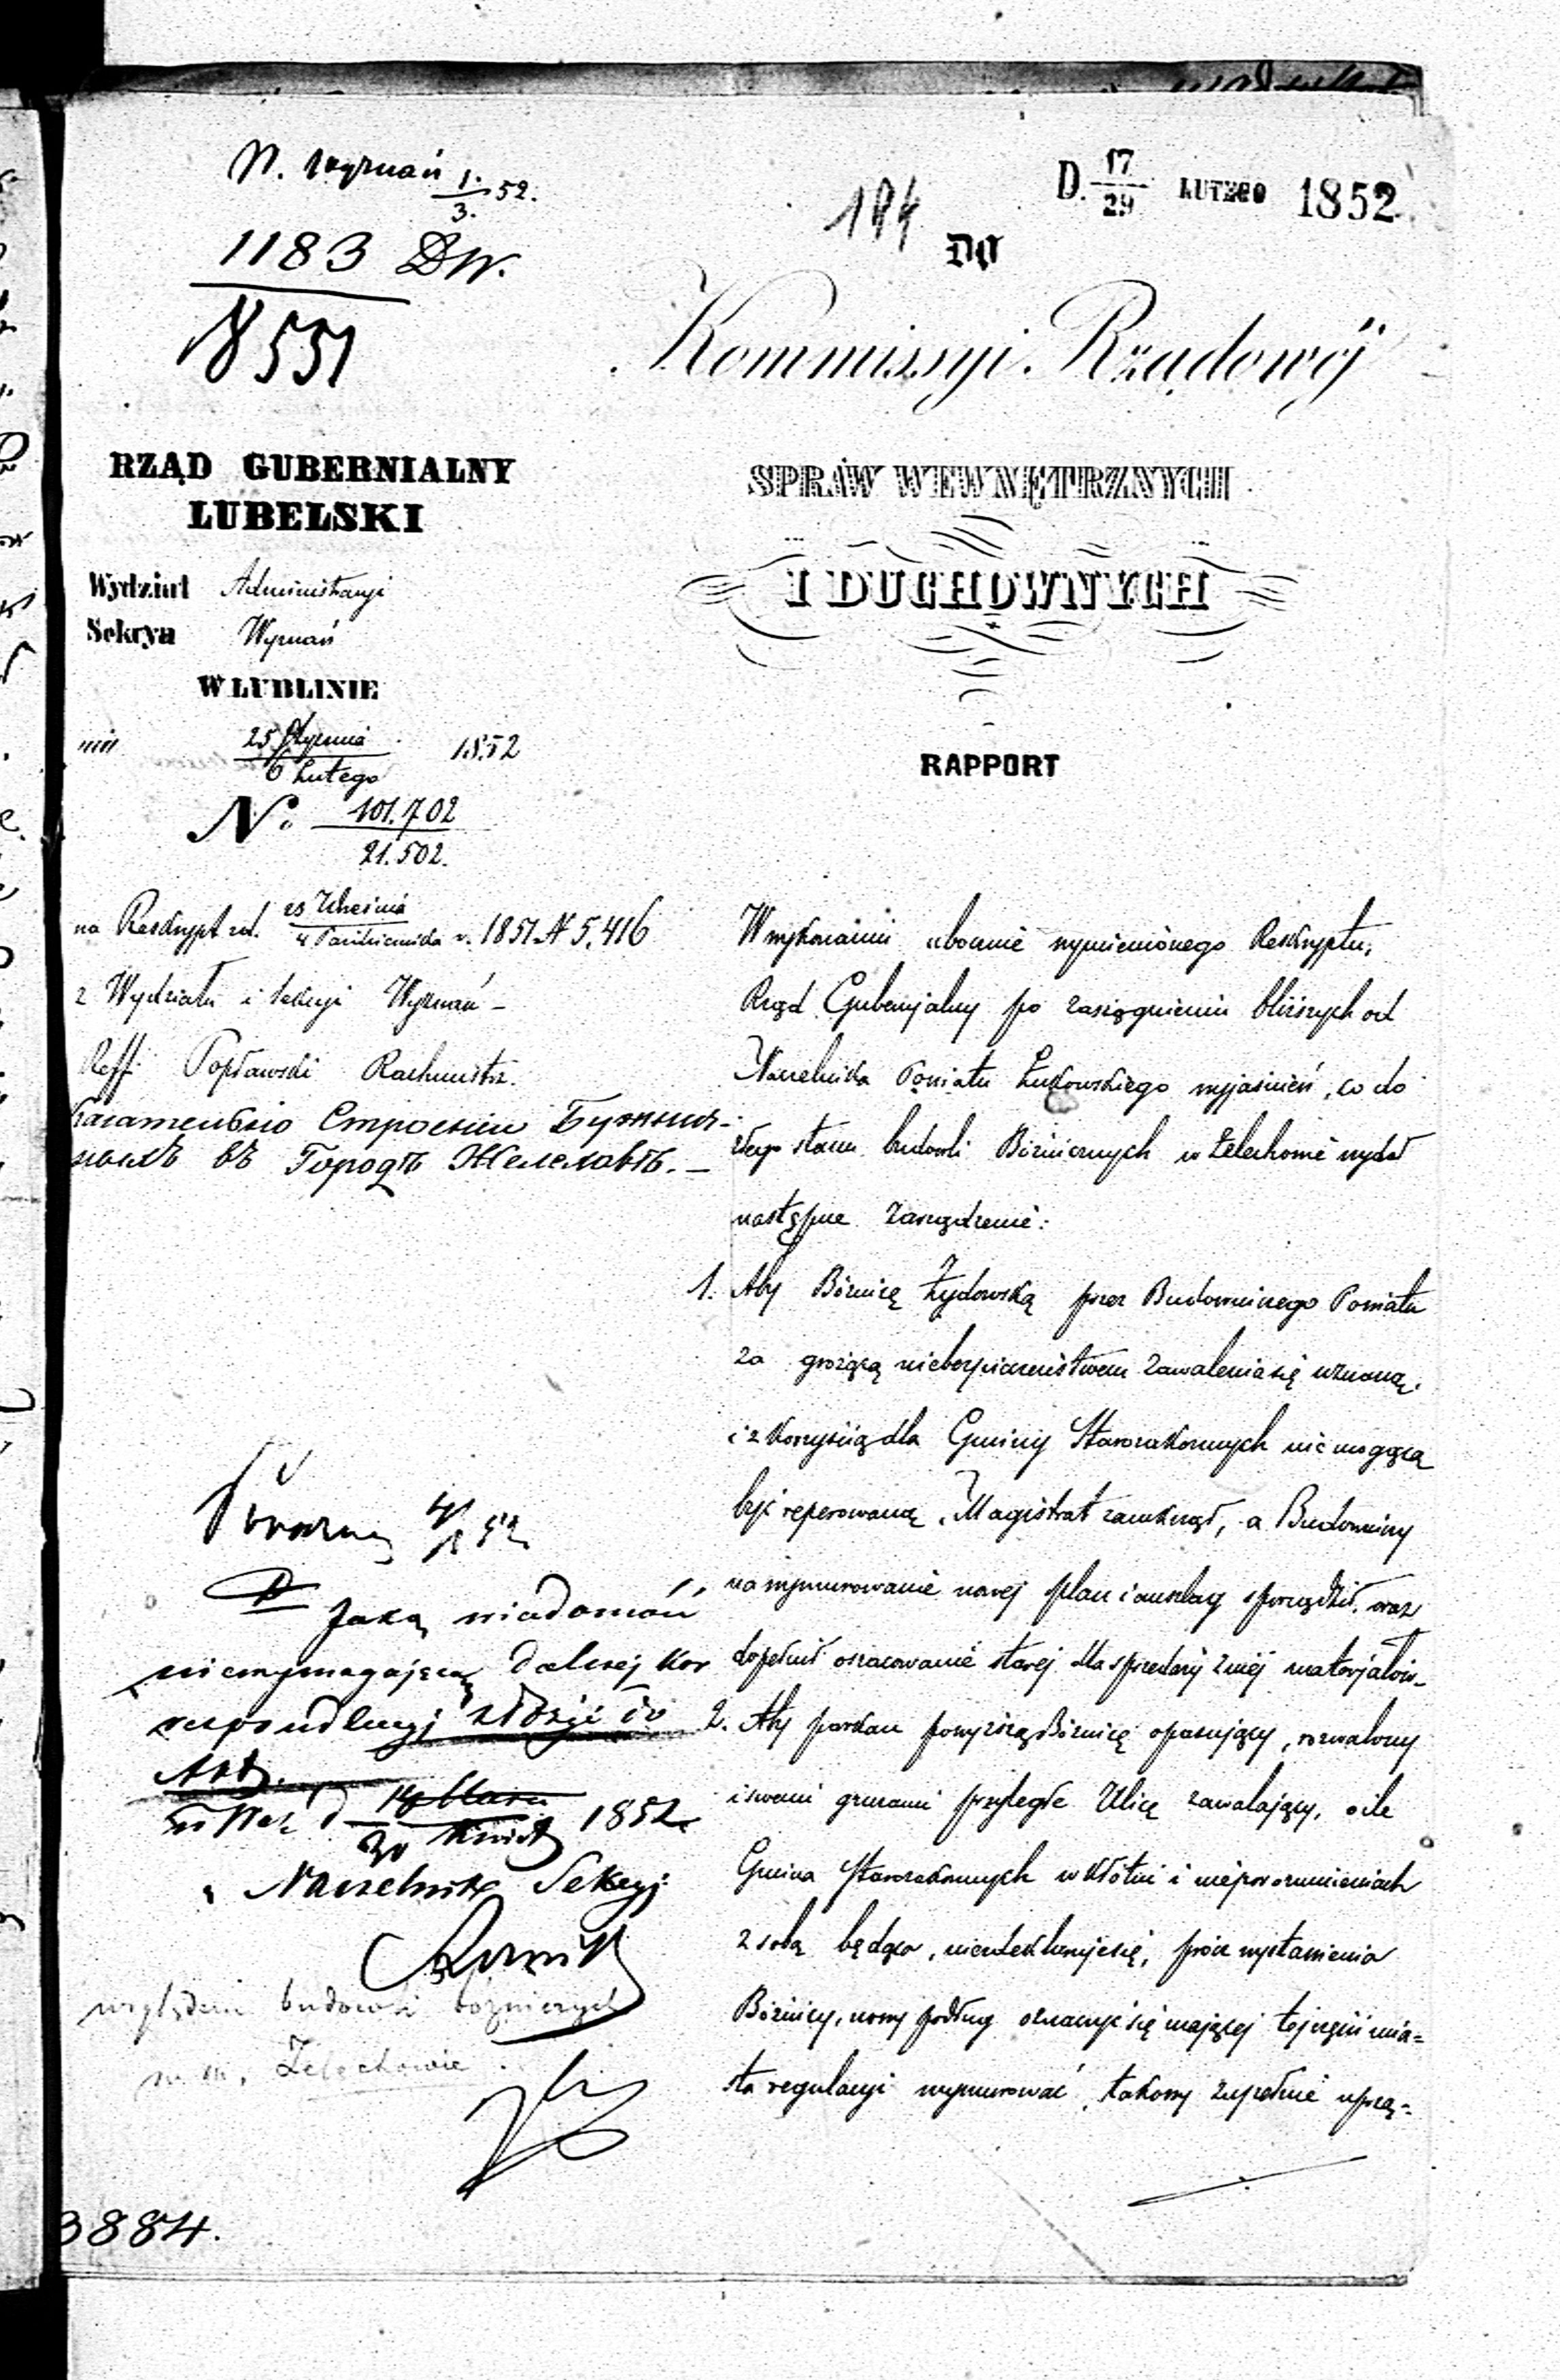 W. Wyznań 1./3. 52.
1183 DW.
18551
184
D. 17/29 LUTEGO 1852
DO
Kommissyi Rządowéj
SPRAW WEWNĘTRZNYCH
I DUCHOWNYCH
RAPPORT
RZĄD GUBERNIALNY
LUBELSKI
Wydział Administracyi
Sekcya Wyznań
W LUBLINIE
dnia 25 Stycznia / 6 Lutego 1852
No. 101.702 / 21.502.
na Reskrypt z d. 23 Września / 4 Października r. 1851 N 5,416
z Wydziału i Sekcyi Wyznań –
Reff. Popławski Rachmistrz.
касательно Строеніи Бужнич-
ныхъ въ Городѣ Желеховѣ. –
W wykonaniu ubocznie wymienionego Reskryptu,
Rząd Gubernjalny po zasiągnieniu bliższych od
Naczelnika Powiatu Łukowskiego wyjaśnień, co do
złego stanu budowli Bóżnicznych w Żelechowie wydał
następne zarządzenie:
1. Aby Bóżnicę Żydowską przez Budowniczego Powiatu
za grożącą niebezpieczeństwem zawalenia się uznaną,
i z korzyścią dla Gminy Starozakonnych nie mogącą
być reperowaną, Magistrat zamknął, a Budowniczy
na wymurowanie nowej plan i anszlag sporządził, oraz
dopełnił oszacowanie starej dla sprzedaży z niéj materjałów –
2. Aby parkan powyższą Bóżnicę opasujący, rozwalony
i swemi gruzami przyległe Ulicę zawalający, o ile
Gmina Starozakonnych w kłótni i nieporozumieniach
z sobą będąca, nie zdeklaruje się, prócz wystawienia
Bóżnicy, nowy podług oznaczyć się mającej tej części mia=
sta regulacyi wymurować, takowy zupełnie uprzą=
Jaką wiadomość
niewymagającą dalszej kor
respondencyi złożyć do
Akt.
1852
Naczelnik Sekcyi
względem budowli bożniczych
w m. Żelechowie
3884.